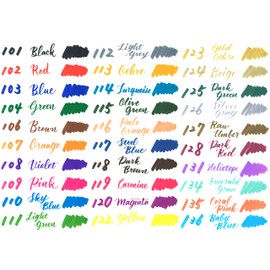 101 Black
102 Red
103 Blue
104 Green
106 Brown
107 Orange
108 Violet
109 Pink
110 Sky Blue
111 Light Green
112 Light Grey
113 Ochre
114 Turquoise
115 Olive Green
116 Pale Orange
117 Steel Blue
118 Dark Brown
119 Carmine
120 Magenta
122 Yellow
123 Gold Ochre
124 Beige
125 Dark Green
126 Silver Grey
127 Raw Umber
128 Dark Red
131 Heliotrope
134 Emerald Green
135 Coral Pink
136 Baby Blue